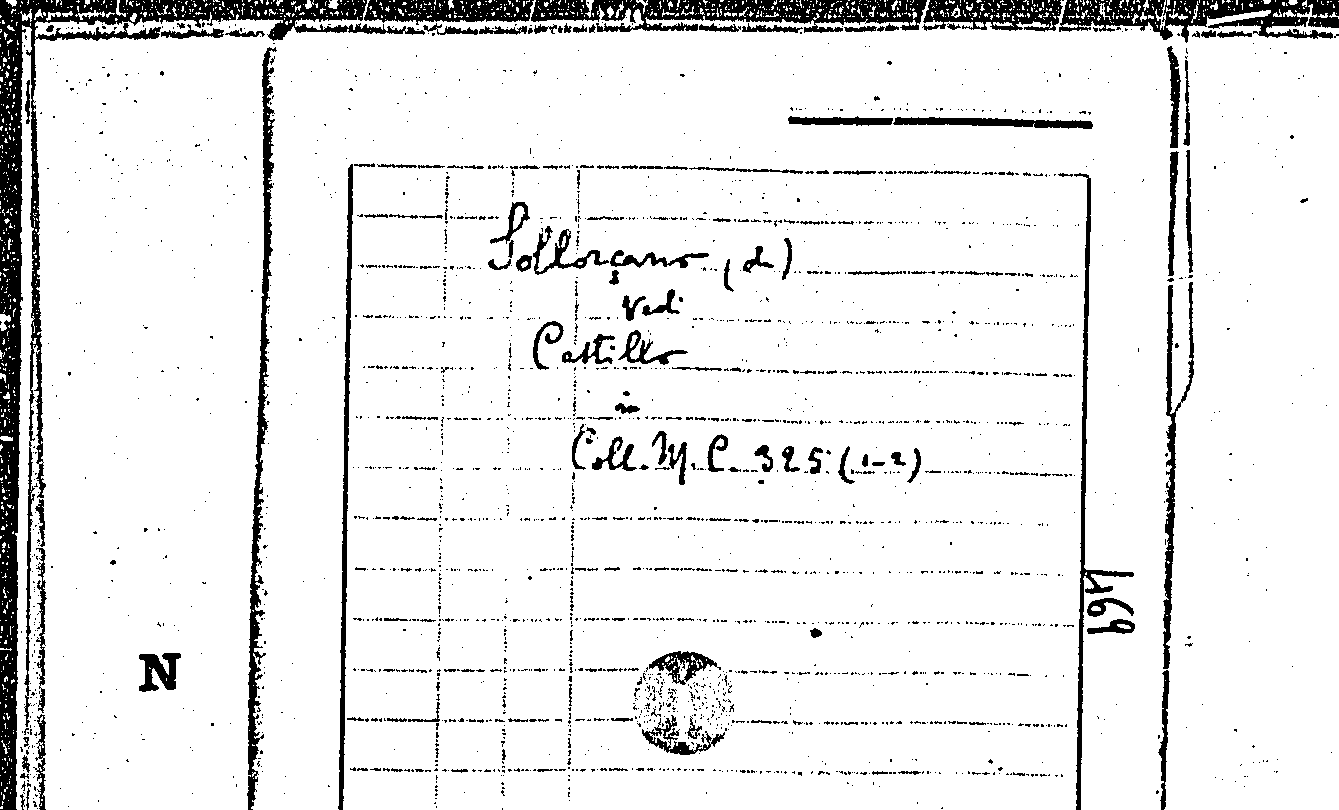 Sollorçano (de)
Vedi
Castillo
in
Coll. M. C. 325 (1-2)
469
N